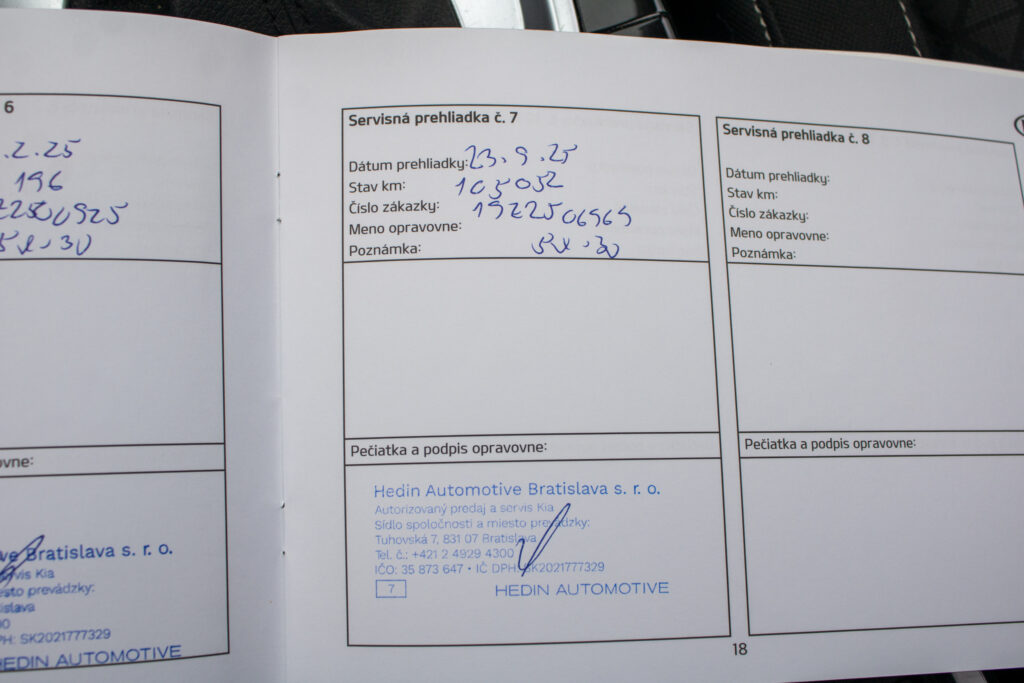 6
.2.25
196
22500925
5W-30
vne:
ve Bratislava s. r. o.
rvis Kia
esto prevádzky:
islava
00
PH: SK2021777329
HEDIN AUTOMOTIVE
Servisná prehliadka č. 7
Dátum prehliadky: 23.9.25
Stav km: 105052
Číslo zákazky: 1922506969
Meno opravovne:
Poznámka: 5W-30
Pečiatka a podpis opravovne:
Hedin Automotive Bratislava s. r. o.
Autorizovaný predaj a servis Kia
Sídlo spoločnosti a miesto prevádzky:
Tuhovská 7, 831 07 Bratislava
Tel. č.: +421 2 4929 4300
IČO: 35 873 647 • IČ DPH: SK2021777329
7
HEDIN AUTOMOTIVE
Servisná prehliadka č. 8
Dátum prehliadky:
Stav km:
Číslo zákazky:
Meno opravovne:
Poznámka:
Pečiatka a podpis opravovne:
18